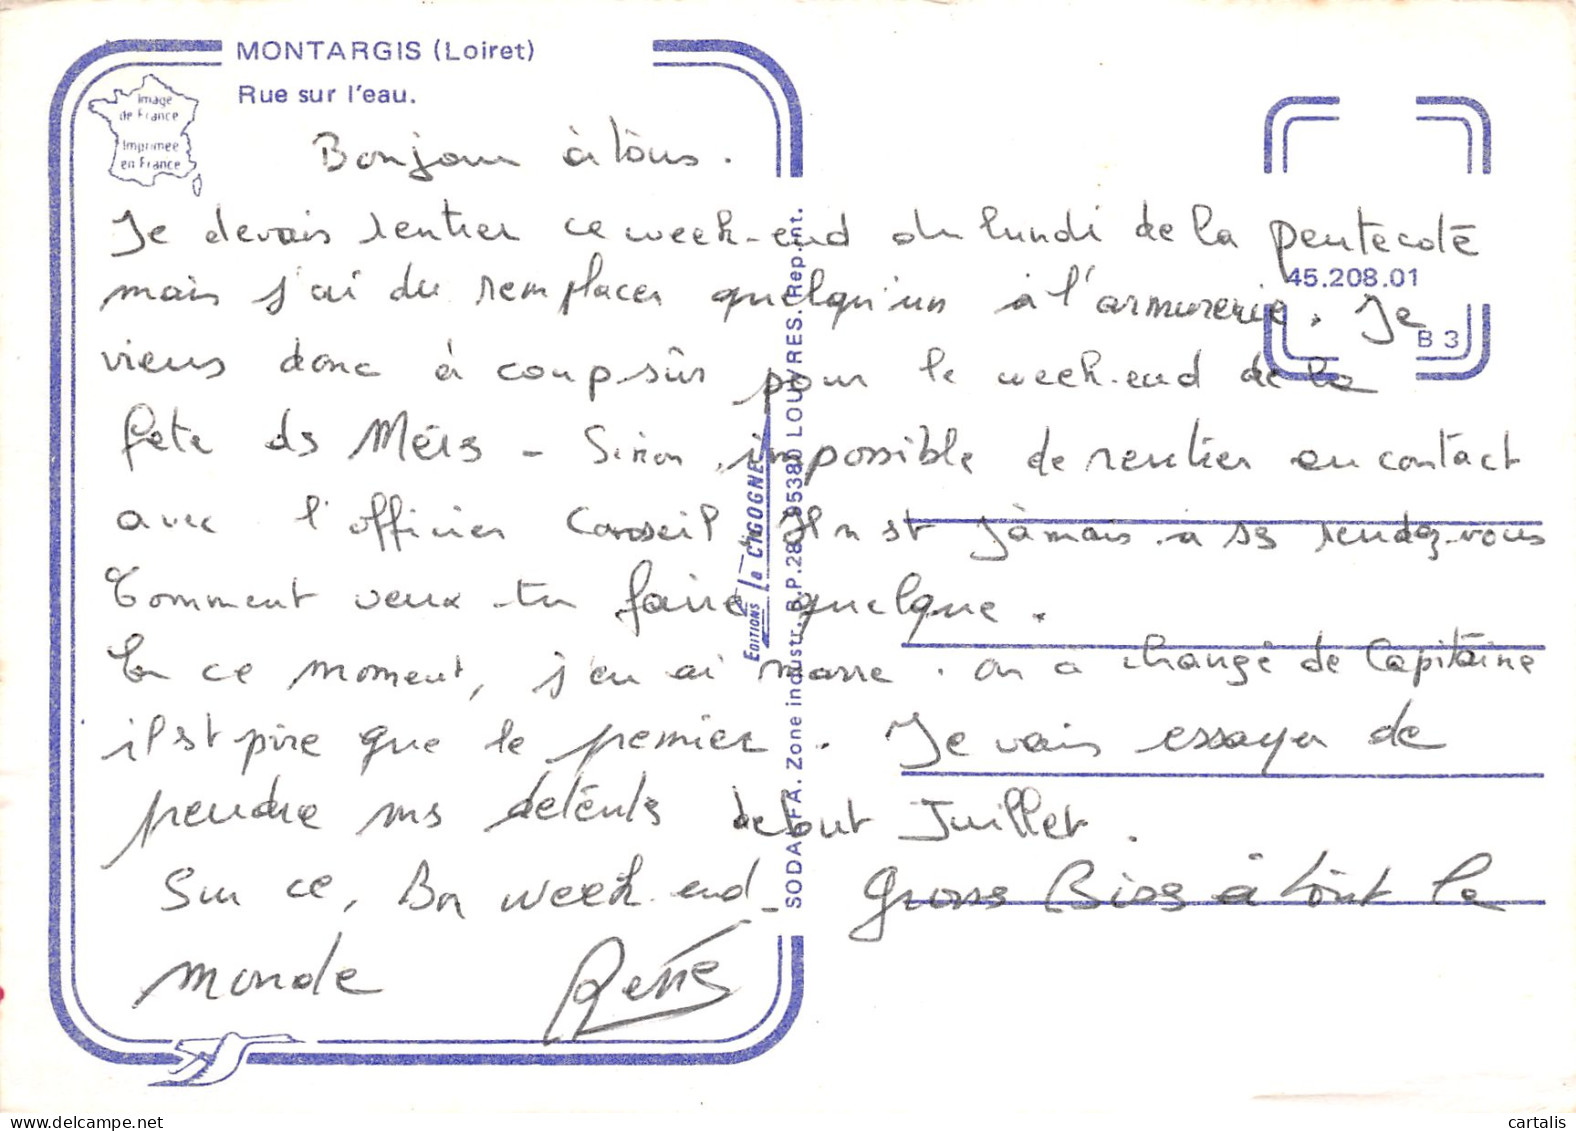 MONTARGIS (Loiret)
Rue sur l'eau.
Image
de France
Imprimée
en France
Bonjour à tous.
Je devais rentrer ce week-end du lundi de la pentecote
45.208.01
mais j'ai du remplacer quelqu'un à l'armurerie. Je
B 3
viens donc à coup sûr pour le week-end de la
fete ds Méis - Sinon, impossible de rentrer en contact
avec l'officier Conseil Il n st jamais a ss rendez-vous
Comment veux-tu faire quelque.
En ce moment, j'en ai marre. on a changé de Capitaine
il st pire que le premier. Je vais essayer de
prendre ms detents debut Juillet.
Sur ce, Bon week-end - Gross Biss à tout le
monde René
EDITIONS La CIGOGNE
SODALFA. Zone industr. B.P.28. 95380 LOUVRES. Rep.int.
cartalis